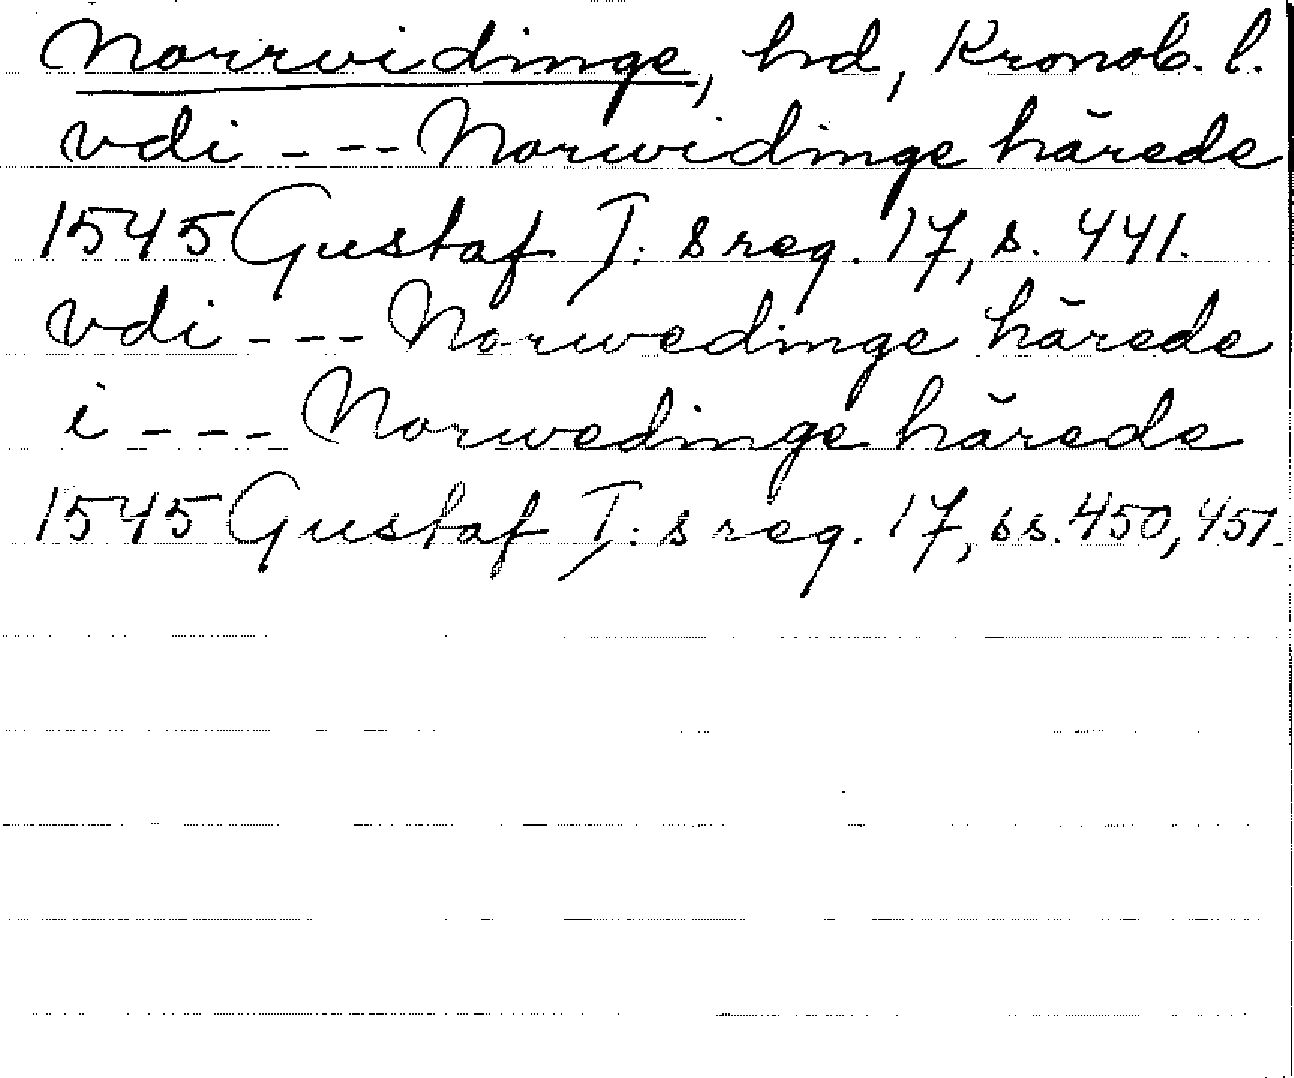 Norrvidinge, hd, Kronob. l.
vdi --- Norwidinge härede
1545 Gustaf I:s reg. 17, s. 441.
vdi --- Norwedinge härede
i --- Norwedinge härede
1545 Gustaf I:s reg. 17, ss. 450, 451.